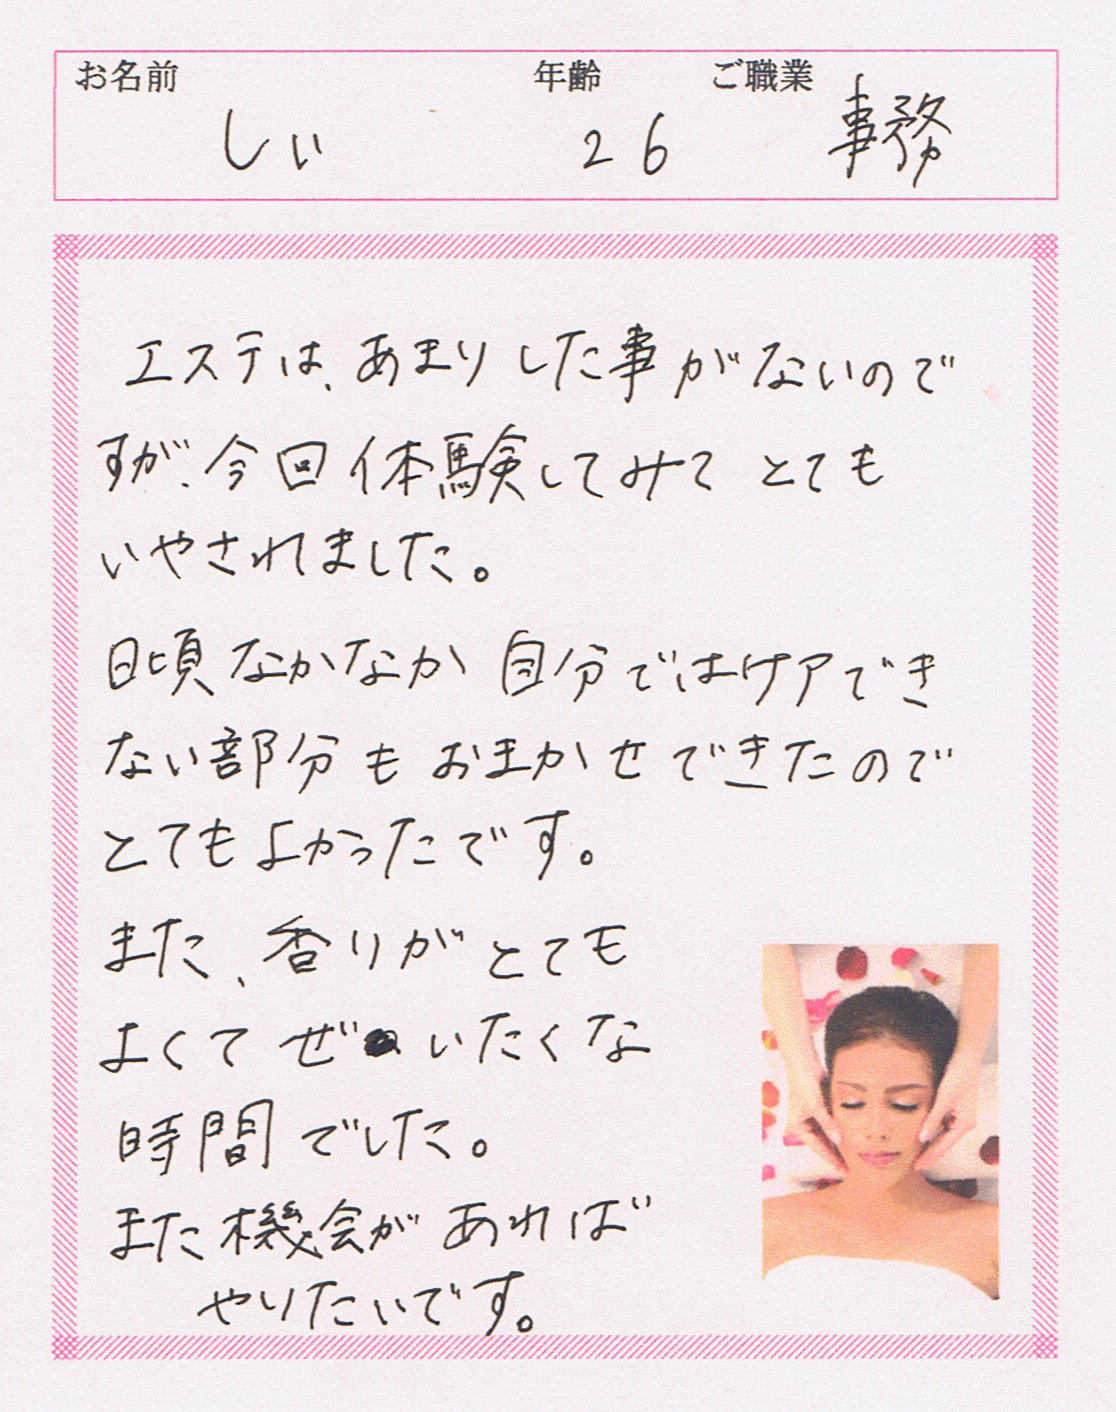 お名前 年齢 ご職業
しぃ 26 事務
エステは、あまりした事がないので
すが、今回体験してみてとても
いやされました。
日頃なかなか自分ではケアでき
ない部分もおまかせできたので
とてもよかったです。
また、香りがとても
よくてぜいたくな
時間でした。
また機会があれば
やりたいです。